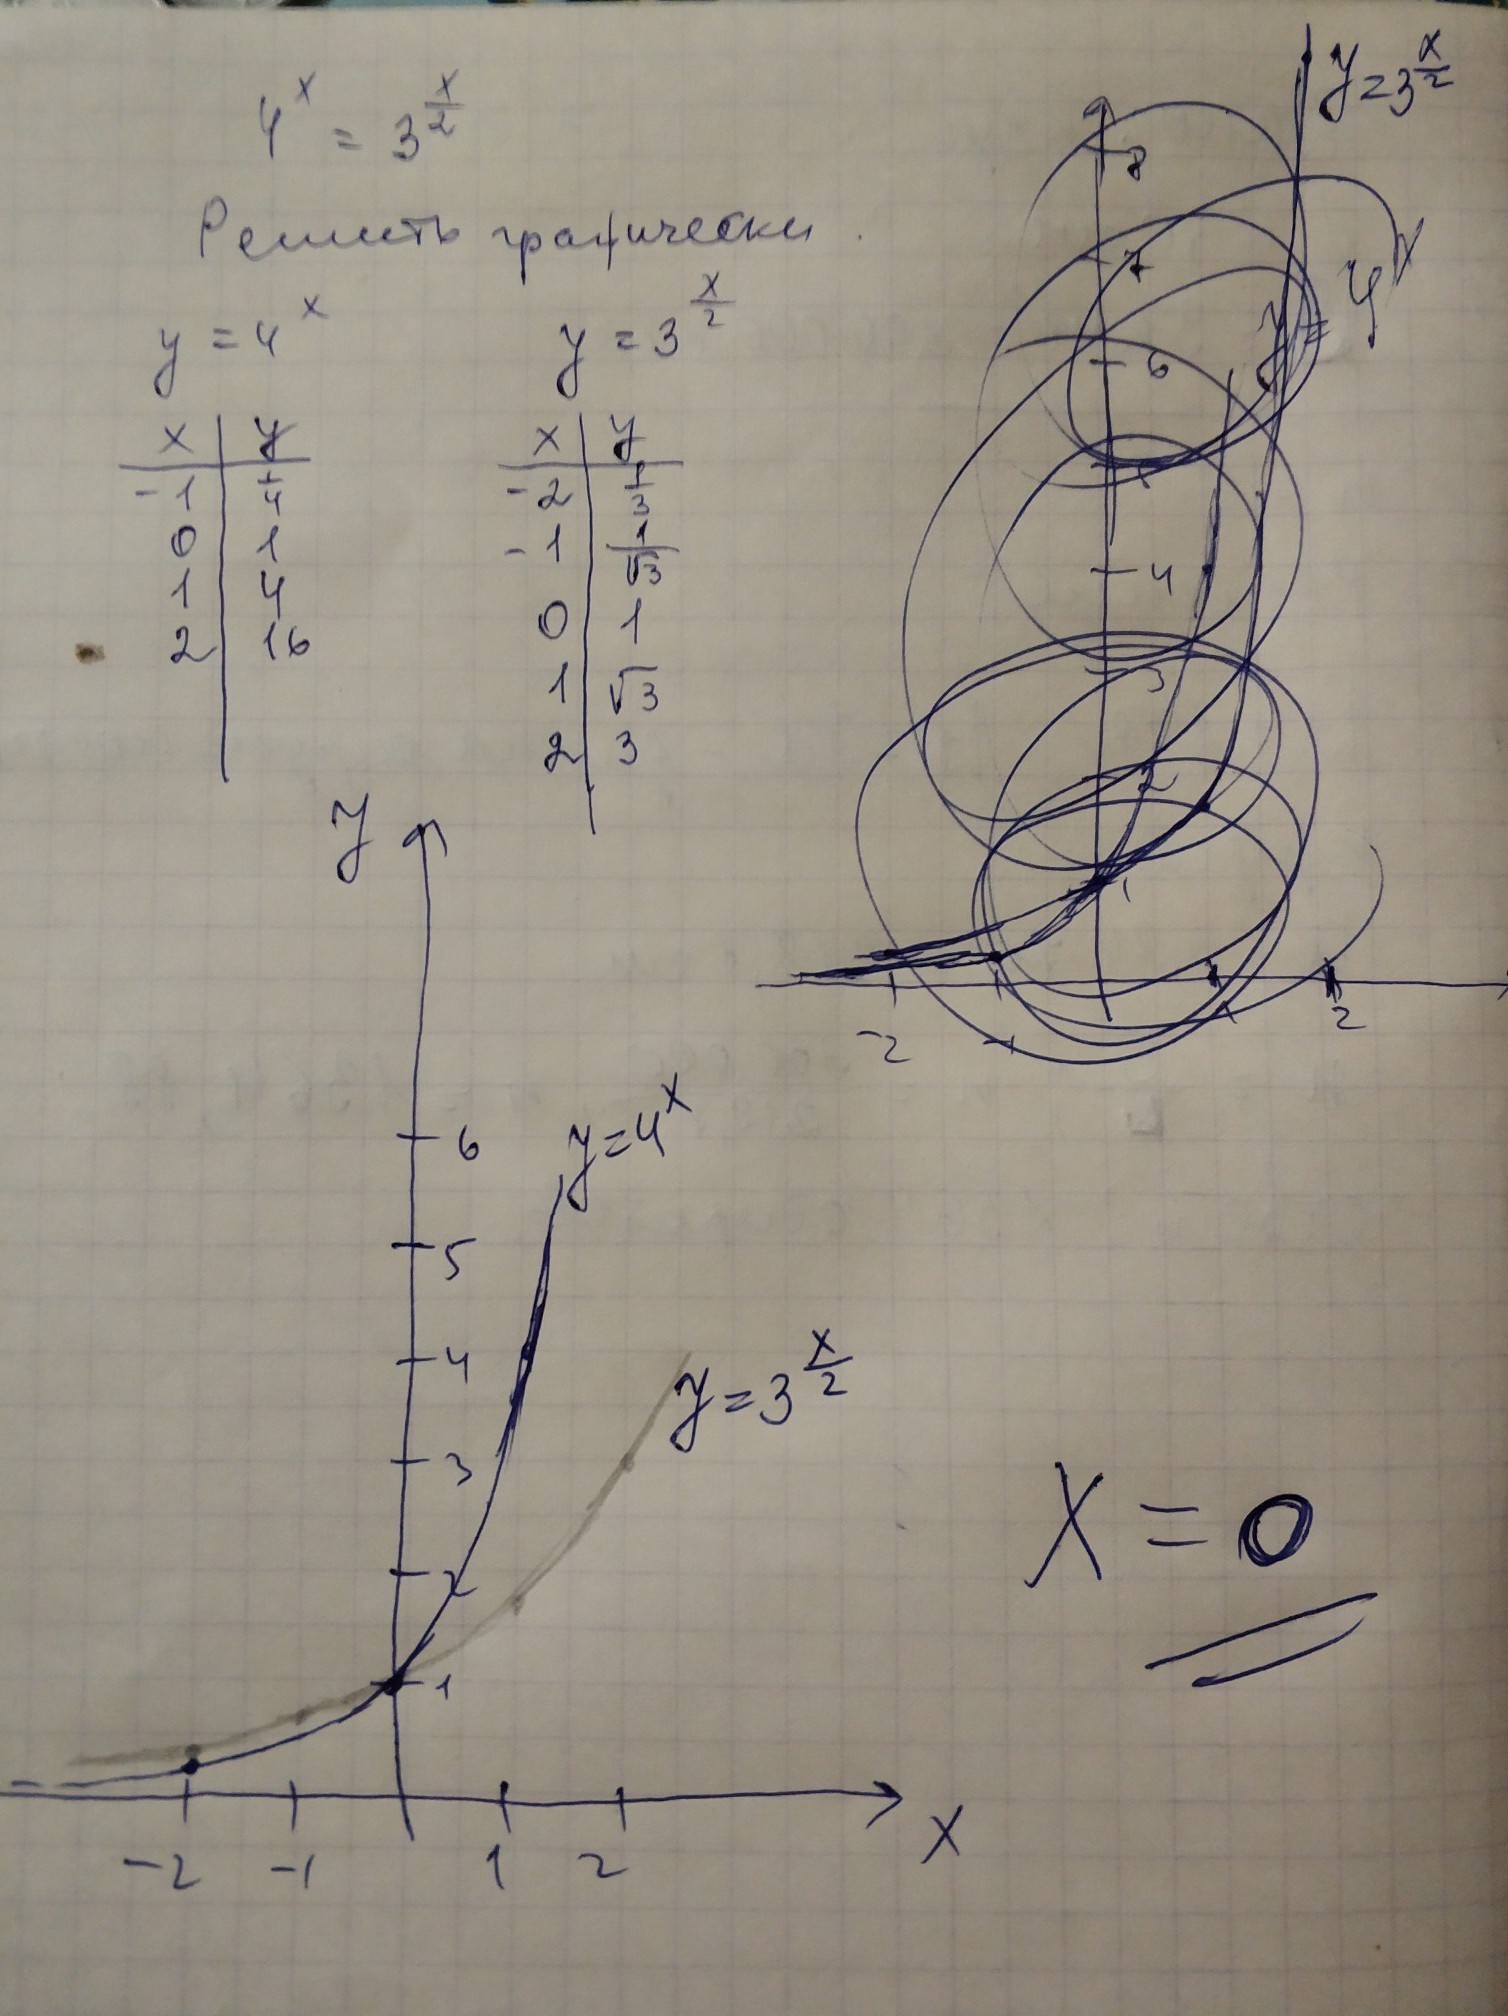 4^x = 3^(x/2)
Решить графически.
y = 4^x
x y
-1 1/4
0 1
1 4
2 16
y = 3^(x/2)
x y
-2 1/3
-1 1/√3
0 1
1 √3
2 3
y=3^(x/2)
y = 4^x
8
7
6
4
3
2
1
-2 -1 1 2
y
6
5
4
3
2
1
-2 -1 1 2
x
y=4^x
y=3^(x/2)
X = 0